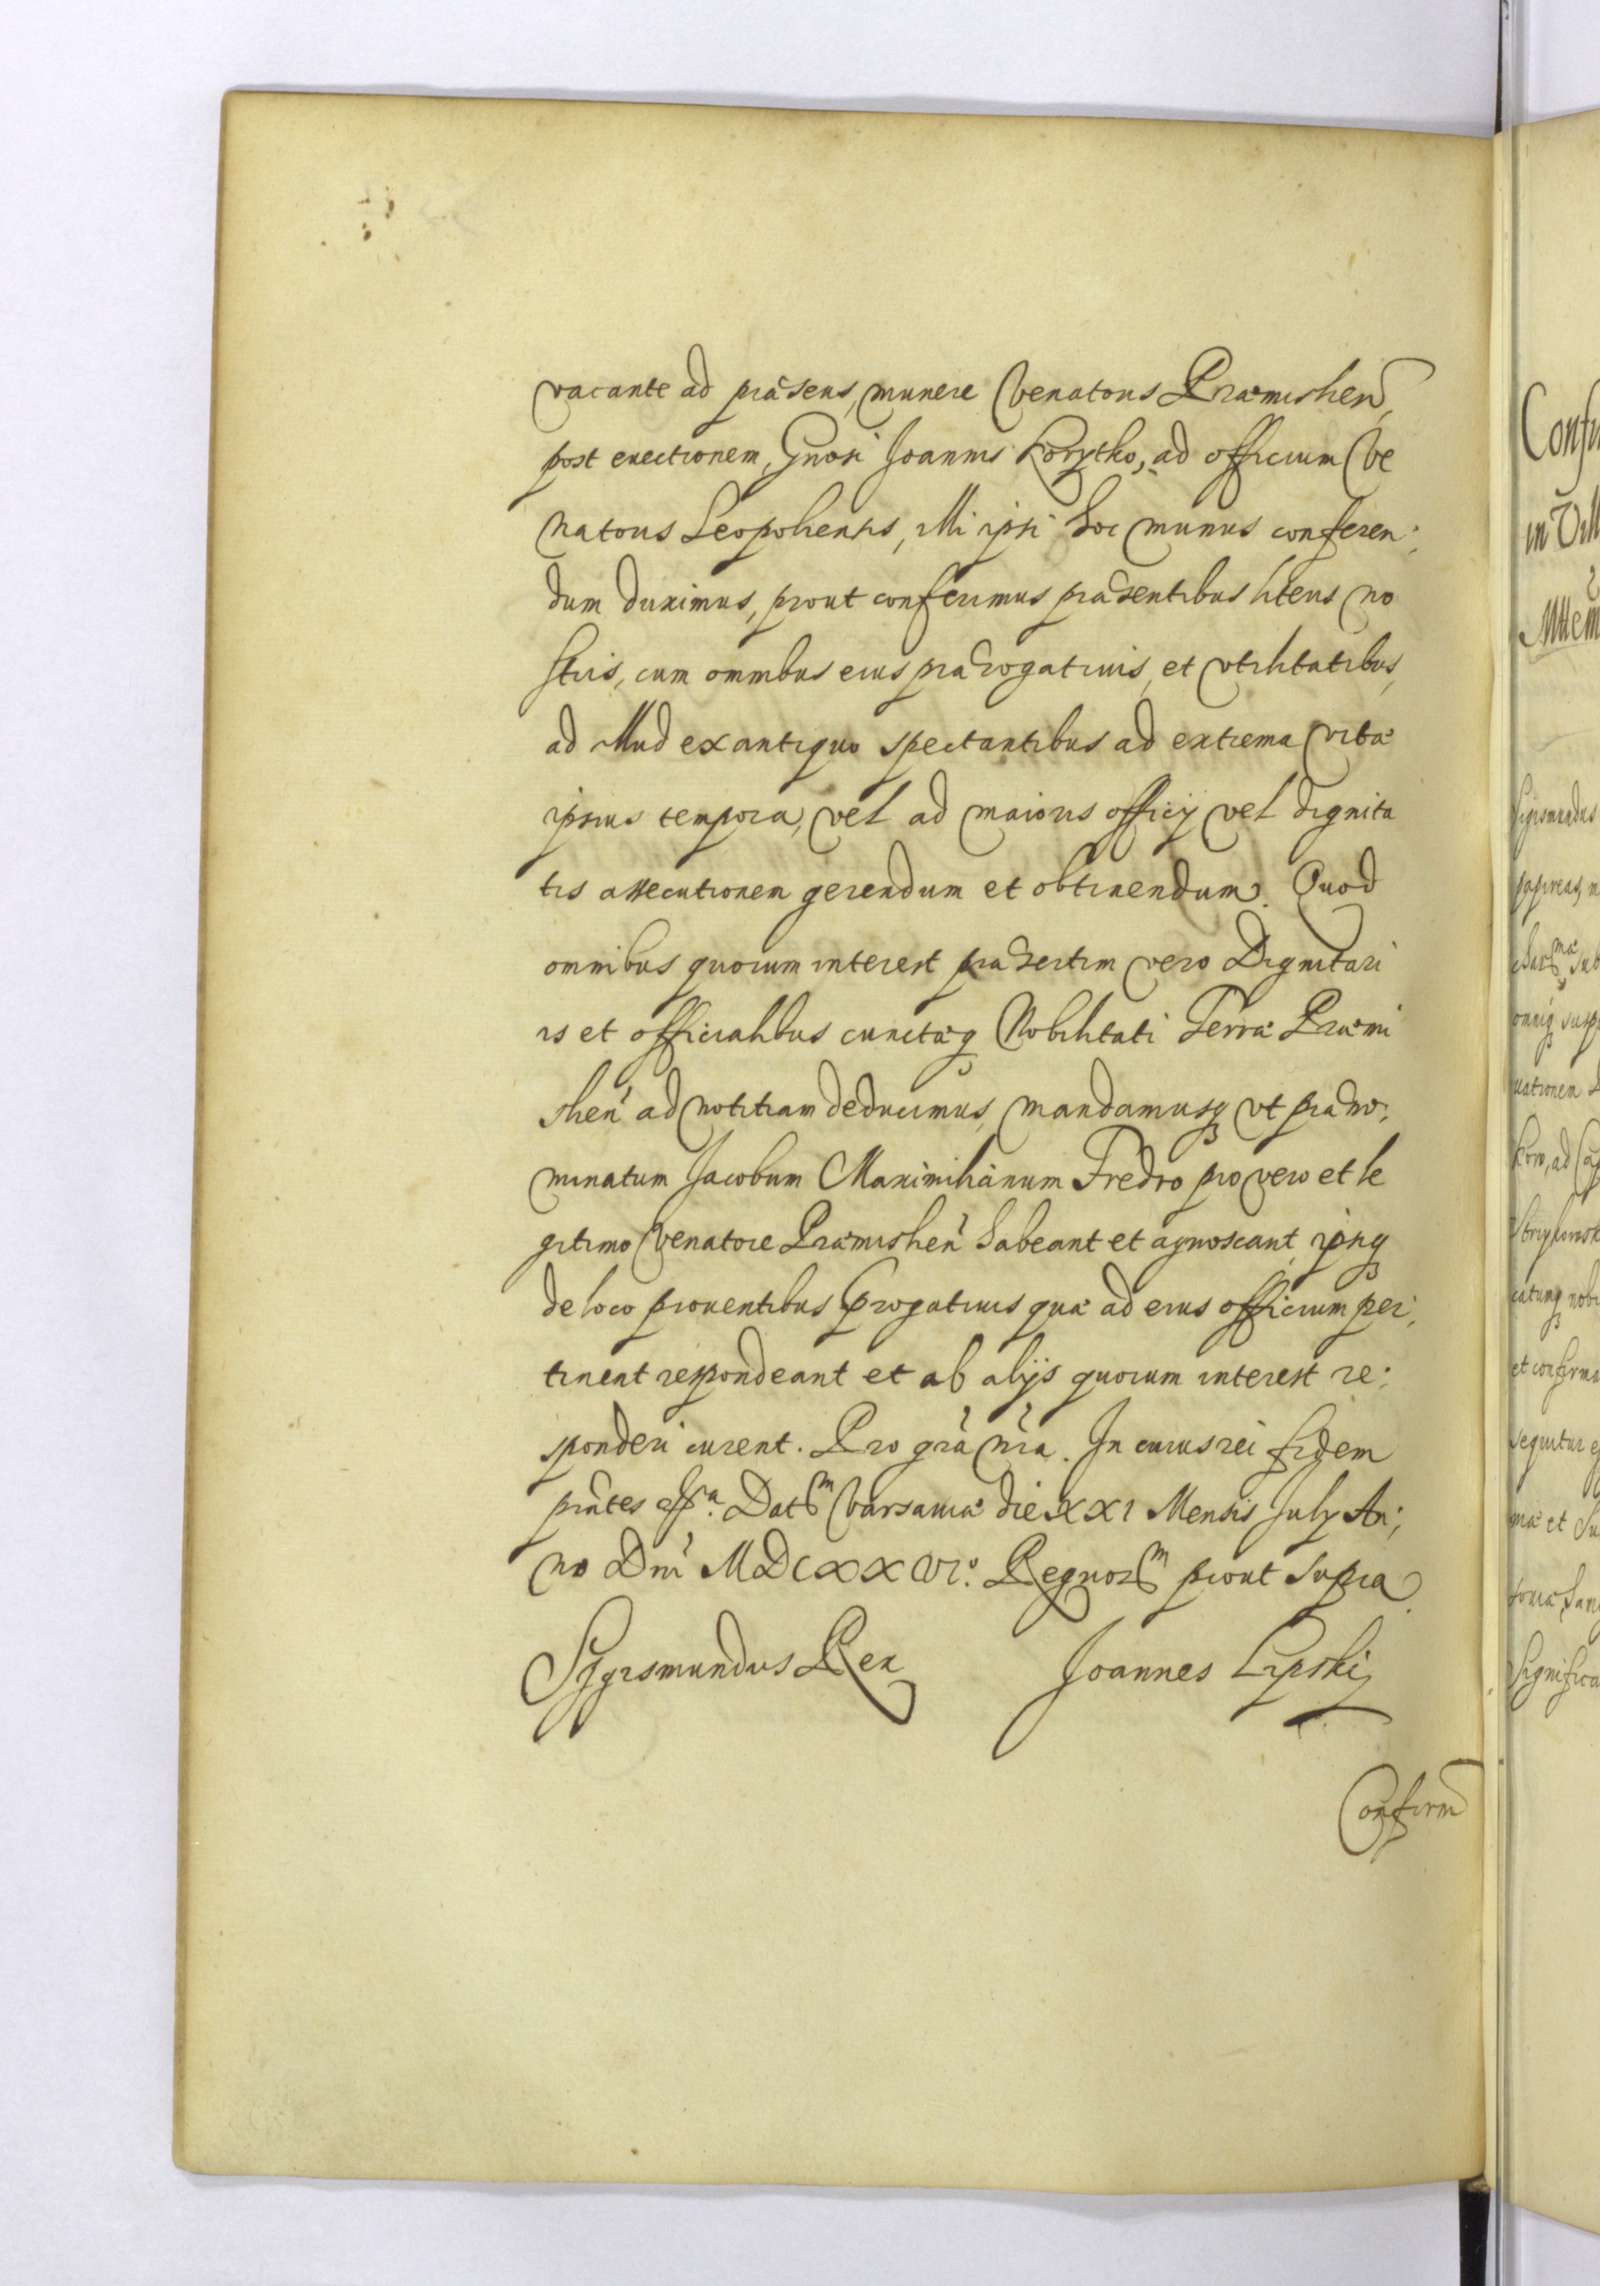 vacante ad præsens, munere Venatoris Præmislien̄,
post evectionem, Gnosi Joannis Korytko, ad officium Ve
natoris Leopoliensis, illi ipsi hoc munus conferen:
dum duximus, prout conferimus præsentibus literis no
stris, cum omnibus eius prærogativis, et vtilitatibus,
ad illud ex antiquo spectantibus ad extrema vitæ
ipsius tempora, vel ad maioris officij vel dignita
tis assecutionem gerendum et obtinendum. Quod
omnibus quorum interest præsertim vero Dignitari
is et officialibus cunctæq Nobilitati Terræ Præmi
slien̄ ad notitiam deducimus, mandamusq vt præno:
minatum Jacobum Maximilianum Fredro pro vero et le
gitimo Venatore Præmislien̄ habeant et agnoscant, ipsiq
de loco prouentibus Progatiuis quæ ad eius officium per:
tinent respondeant et ab alijs quorum interest re:
sponderi curent. Pro grā nrā. In cuius rei fidem
prñtes Datm Varsauiæ die XXI Mensis July An:
no Dnī MDCXXVIo. Regnorm prout supra
Sigismundus Rex Joannes Lipski
Confirm
Conf
in Vill
Sigismundus
papireas
uationem
Kow, ad
catumq nobi
et confirma
sequitur
ma et Su
Significa